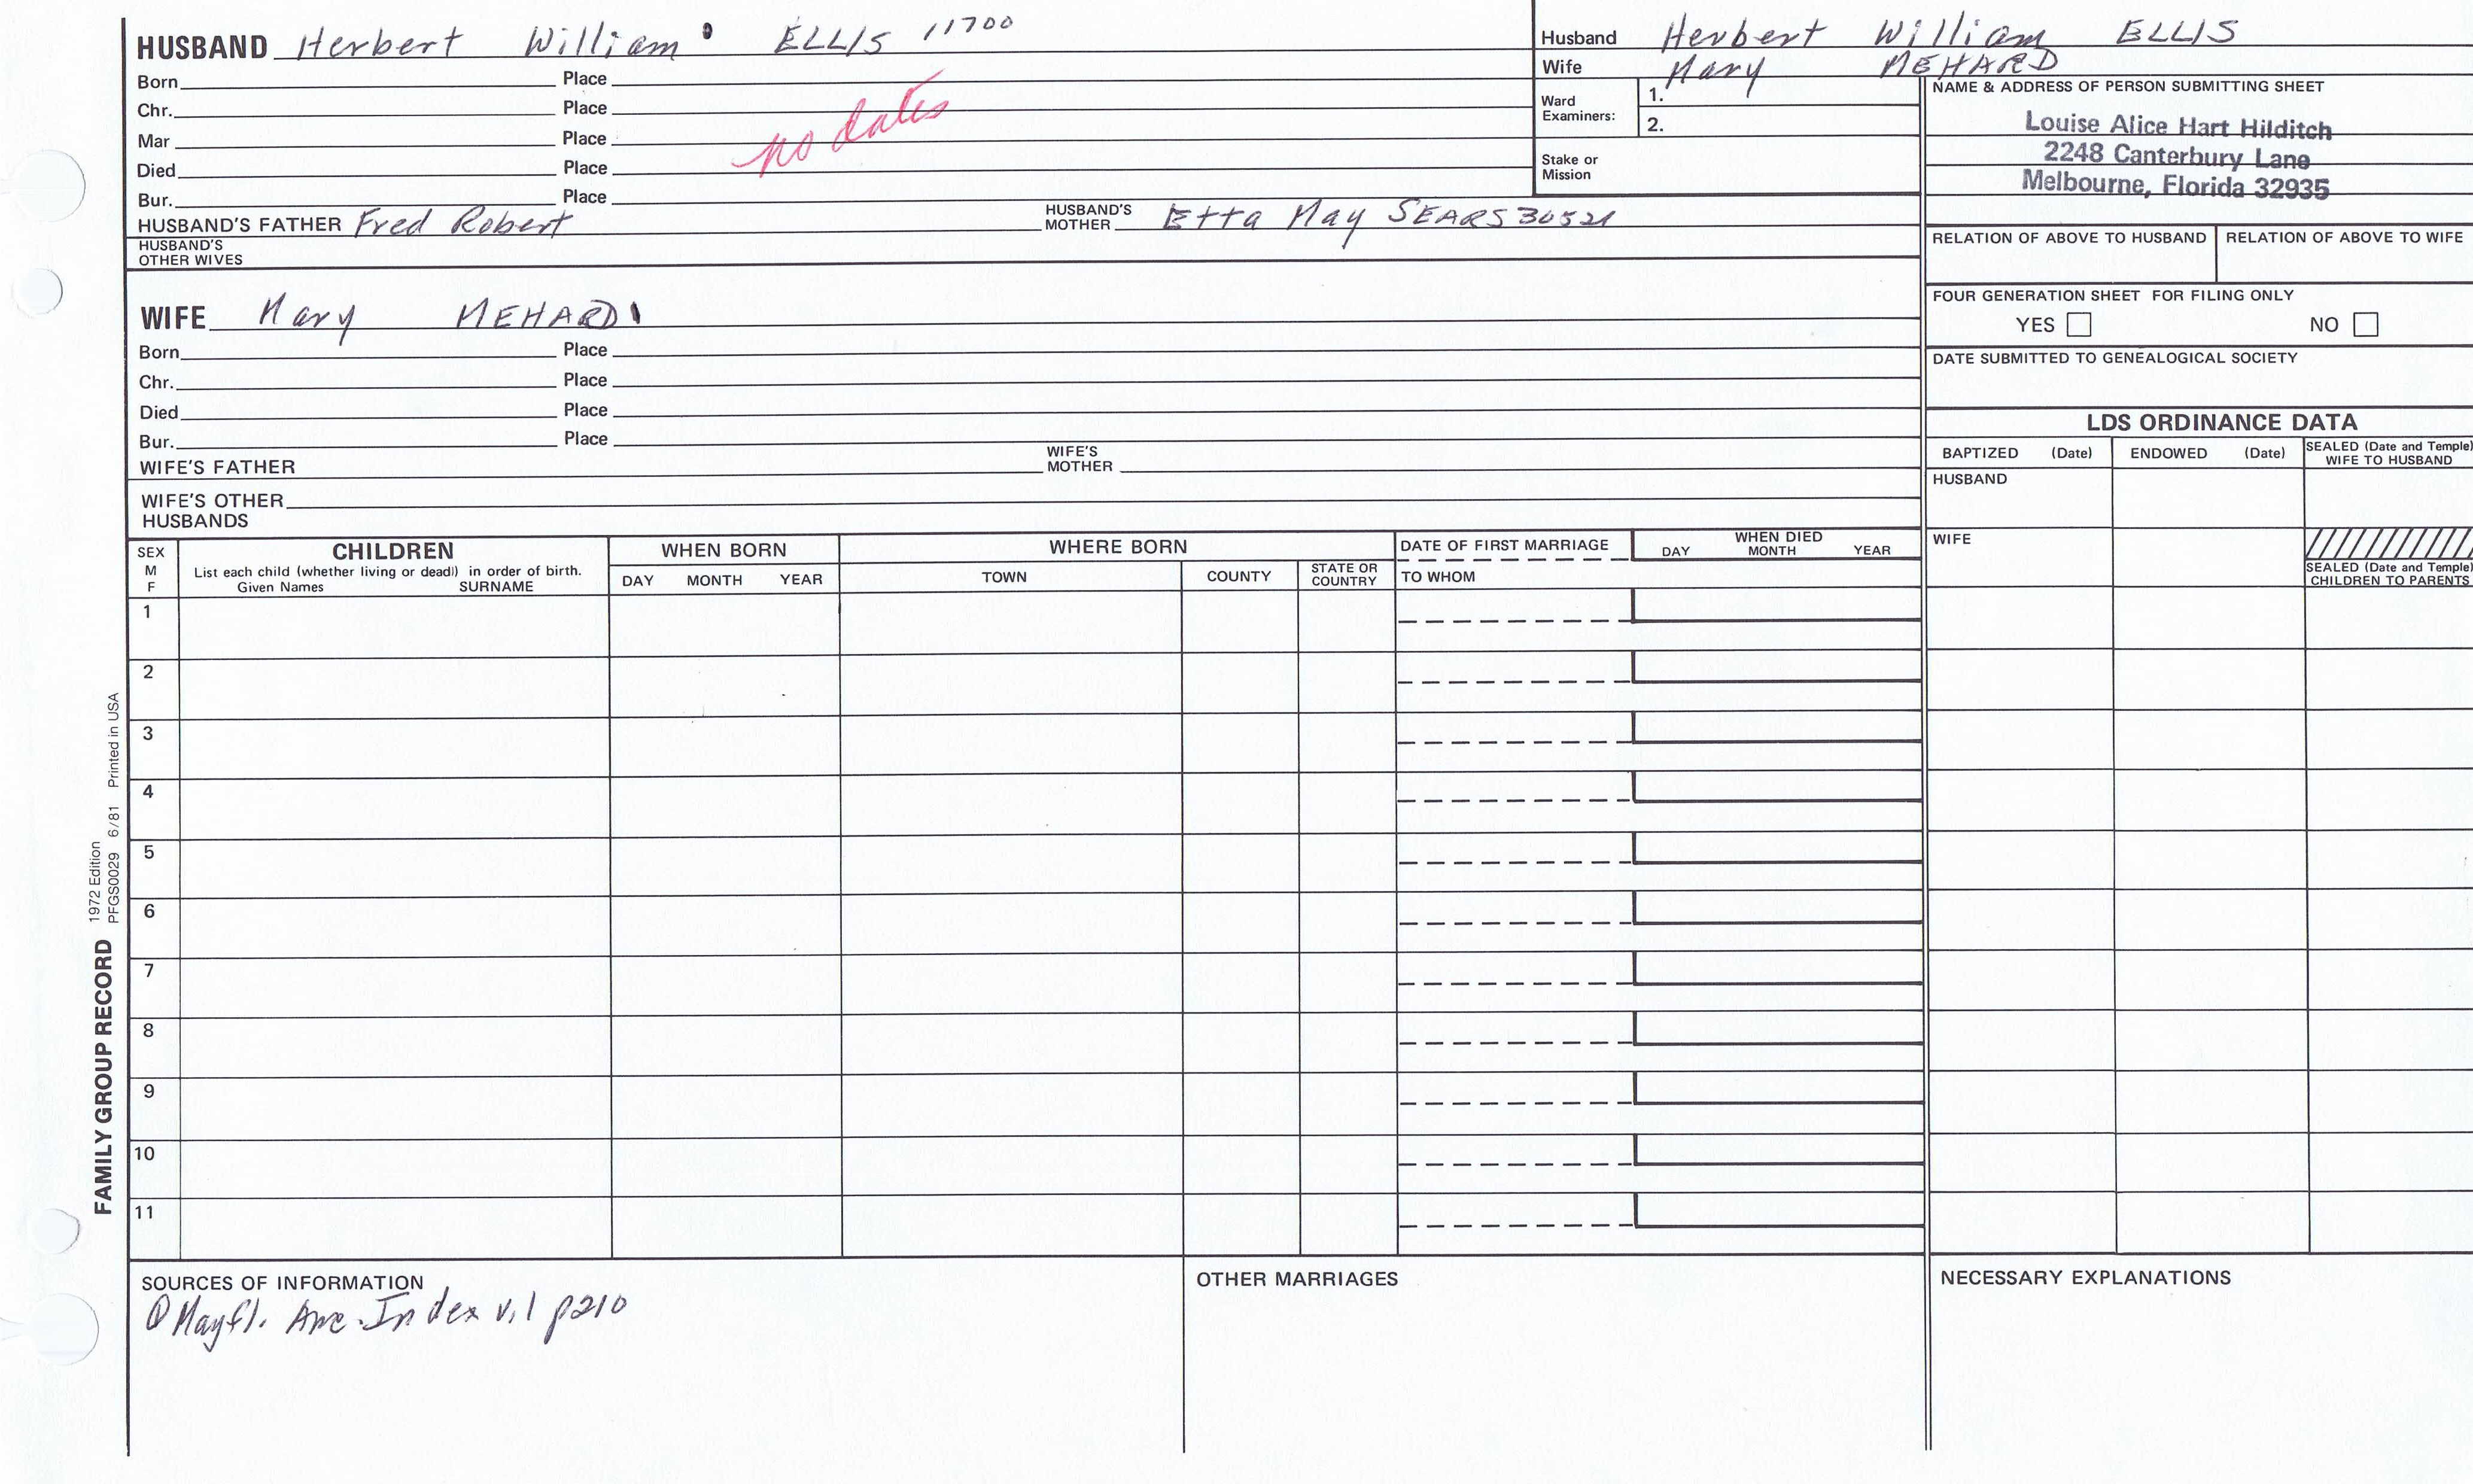 HUSBAND Herbert William ELLIS 11700
Born Place
Chr. Place
Mar Place
Died Place
Bur. Place
no dates
HUSBAND'S FATHER Fred Robert HUSBAND'S MOTHER Etta May SEARS 30521
HUSBAND'S OTHER WIVES
WIFE Mary MEHARD
Born Place
Chr. Place
Died Place
Bur. Place
WIFE'S FATHER WIFE'S MOTHER
WIFE'S OTHER HUSBANDS
Husband Herbert William ELLIS
Wife Mary MEHARD
Ward Examiners: 1.
2.
Stake or Mission
NAME & ADDRESS OF PERSON SUBMITTING SHEET
Louise Alice Hart Hilditch
2248 Canterbury Lane
Melbourne, Florida 32935
RELATION OF ABOVE TO HUSBAND RELATION OF ABOVE TO WIFE
FOUR GENERATION SHEET FOR FILING ONLY
YES NO
DATE SUBMITTED TO GENEALOGICAL SOCIETY
LDS ORDINANCE DATA
BAPTIZED (Date) ENDOWED (Date) SEALED (Date and Temple) WIFE TO HUSBAND
HUSBAND
WIFE
SEALED (Date and Temple) CHILDREN TO PARENTS
SEX M F
CHILDREN
List each child (whether living or dead) in order of birth.
Given Names SURNAME
WHEN BORN
DAY MONTH YEAR
WHERE BORN
TOWN COUNTY STATE OR COUNTRY
DATE OF FIRST MARRIAGE
TO WHOM
WHEN DIED
DAY MONTH YEAR
1
2
3
4
5
6
7
8
9
10
11
SOURCES OF INFORMATION
① Mayfl. Anc. Index v.1 p210
OTHER MARRIAGES
NECESSARY EXPLANATIONS
FAMILY GROUP RECORD
1972 Edition
PFGS0029 6/81 Printed in USA